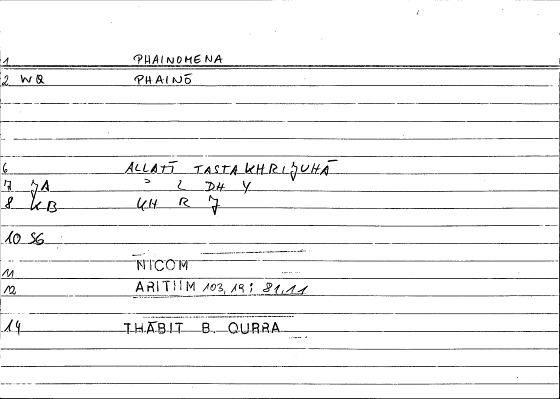 1 PHAINOMENA
2 WQ PHAINŌ
6 ALLATĪ TASTAKHRIJUHĀ
7 JA ʾ L DH Y
8 KB KH R J
10 SG
11 NICOM
12 ARITIIM 103,19; 81,11
14 THĀBIT B. QURRA